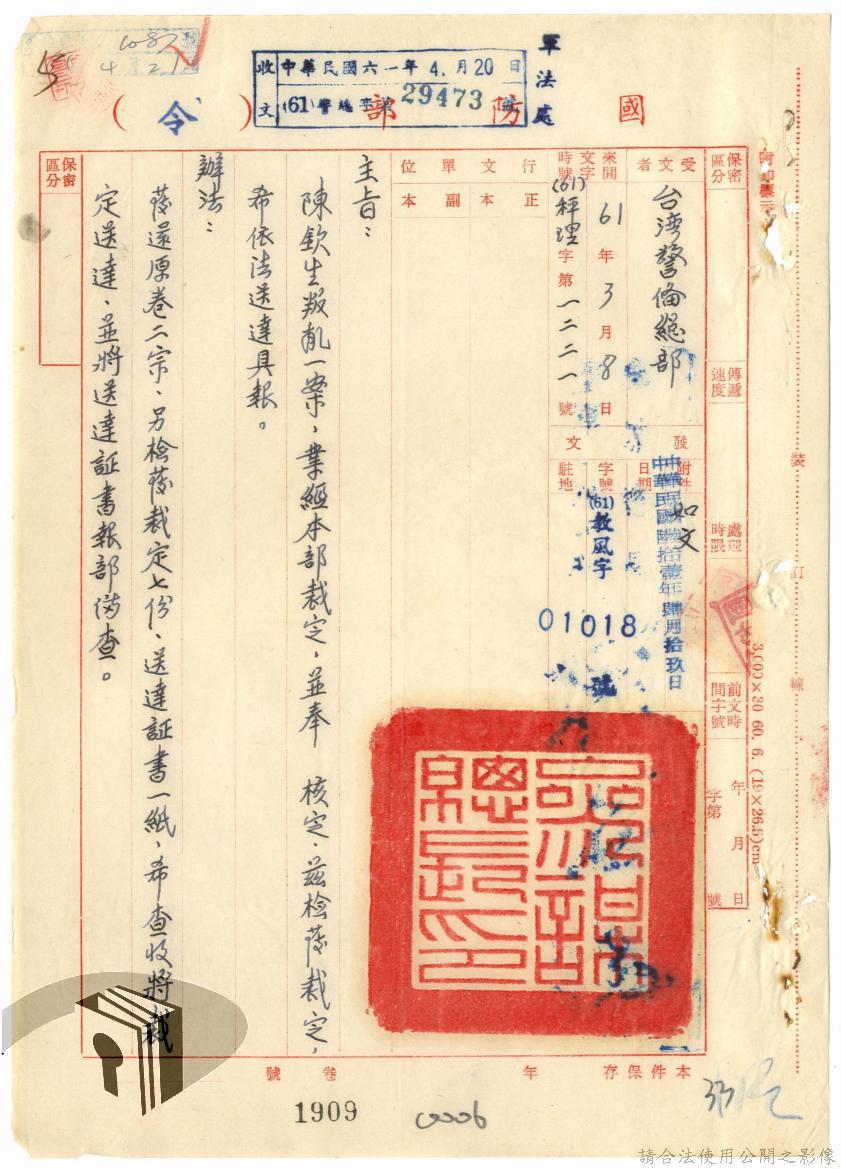 國防部
（令）
軍法處
收文
中華民國六一年4.月20日
(61)警總
29473
保密區分
傳遞速度
處理時限
前文時間字號
年 月 日
字第 號
受文者
台湾警俻總部
來文時間字號
61年3月8日
(61)秤理字第一二二一號
發文
附件
如文
日期
中華民國陸拾壹年肆月拾玖日
字號
(61)教風字
01018號
駐地
行文單位
正本
副本
主旨：
陳欽生叛亂一案，業經本部裁定，並奉 核定，茲檢發裁定，
希依法送達具報。
辦法：
發還原卷二宗，另檢發裁定七份、送達証書一紙，希查收將裁
定送達，並將送達証書報部俻查。
保密區分
參謀總長印
裝 訂 線
3,000×30 60. 6. (19×26.5)cm
本件保存 年
卷 號
1909
0006
請合法使用公開之影像